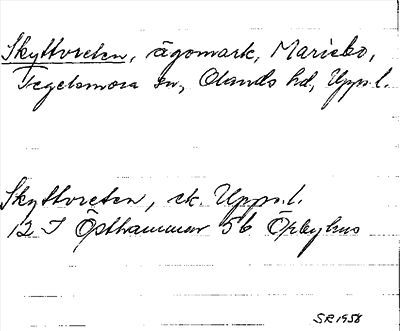 Skyttvreten, ägomark, Mariebo,
Tegelsmora sn, Olands hd, Upps.l.
Skyttvreten, ek. Upps.l.
12 I Östhammar 5b Örbyhus
SR 1958